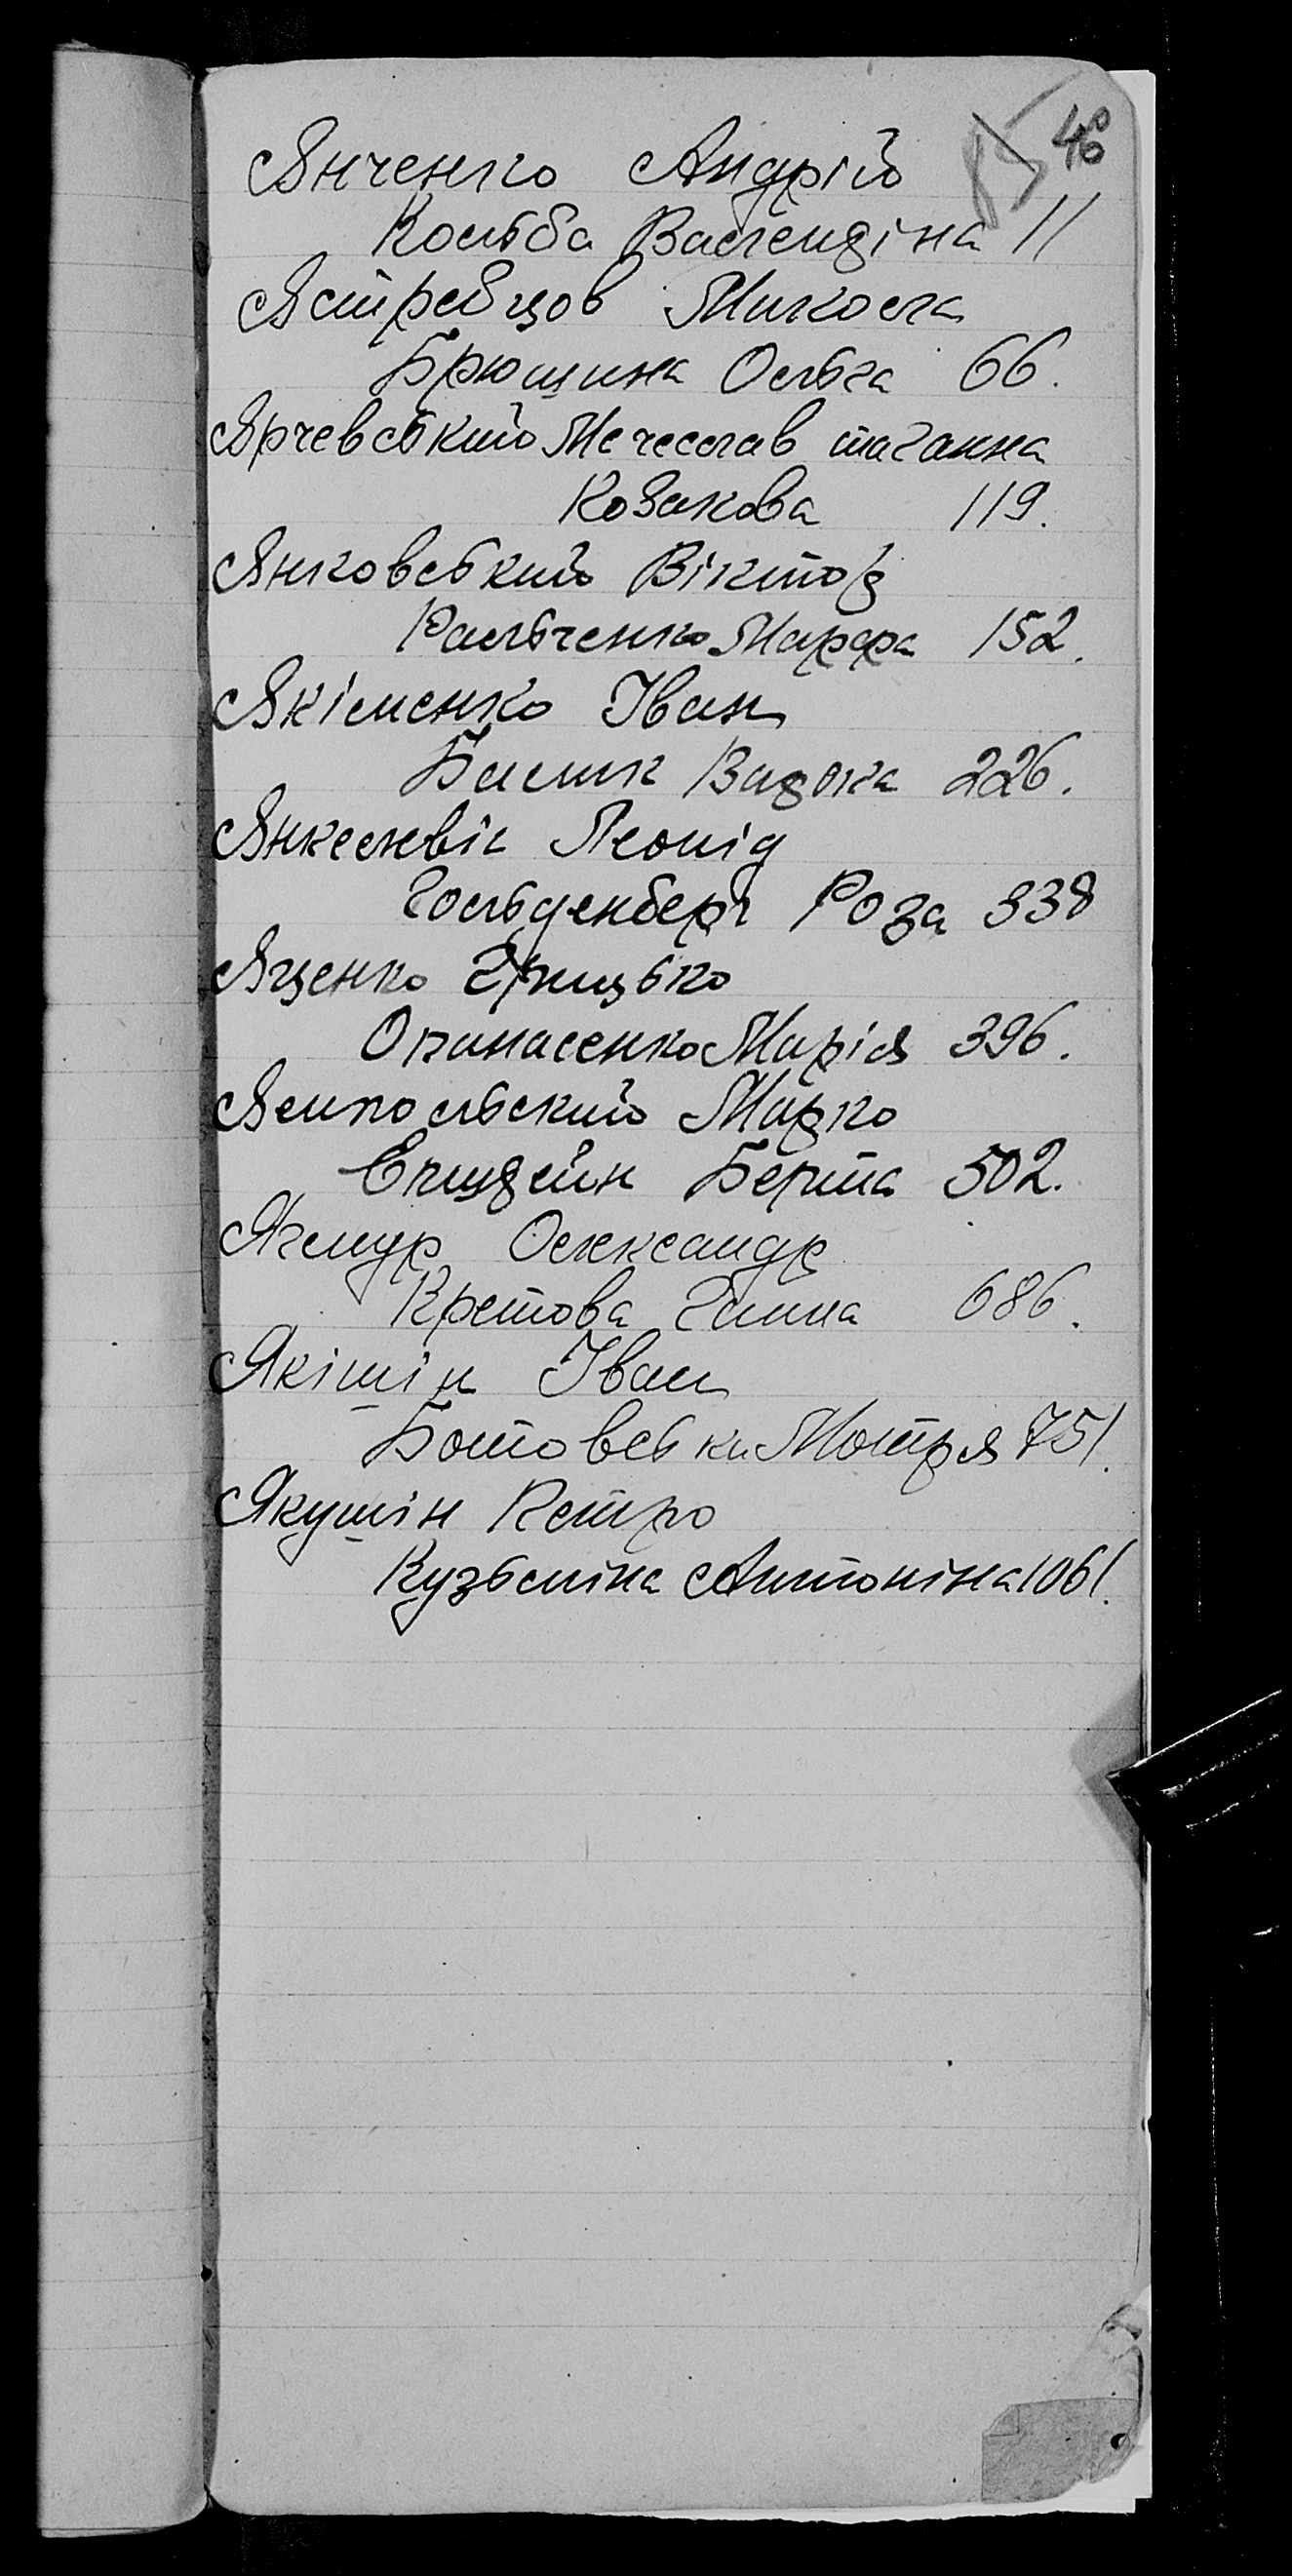 48
Янченко Андрій
Кольба Валендіна 11
Ястребцов Микола
Брющина Ольга 66.
Ярчевський Мечеслав та Ганна
Козакова 119.
Янковський Віктор
Ральченко Марфа 152.
Якіменко Іван
Балик Вадока 226.
Янкелевіч Леонід
Гольденберг Роза 338
Яценко Грицько
Опанасенко Марія 396.
Ямпольский Марко
Епщдейн Берта 502.
Ягмур Олександр
Кретова Ганна 686.
Якішін Іван
Ботовськи Мотря 751.
Якушін Петро
Кузьміна Антоніна 1061.